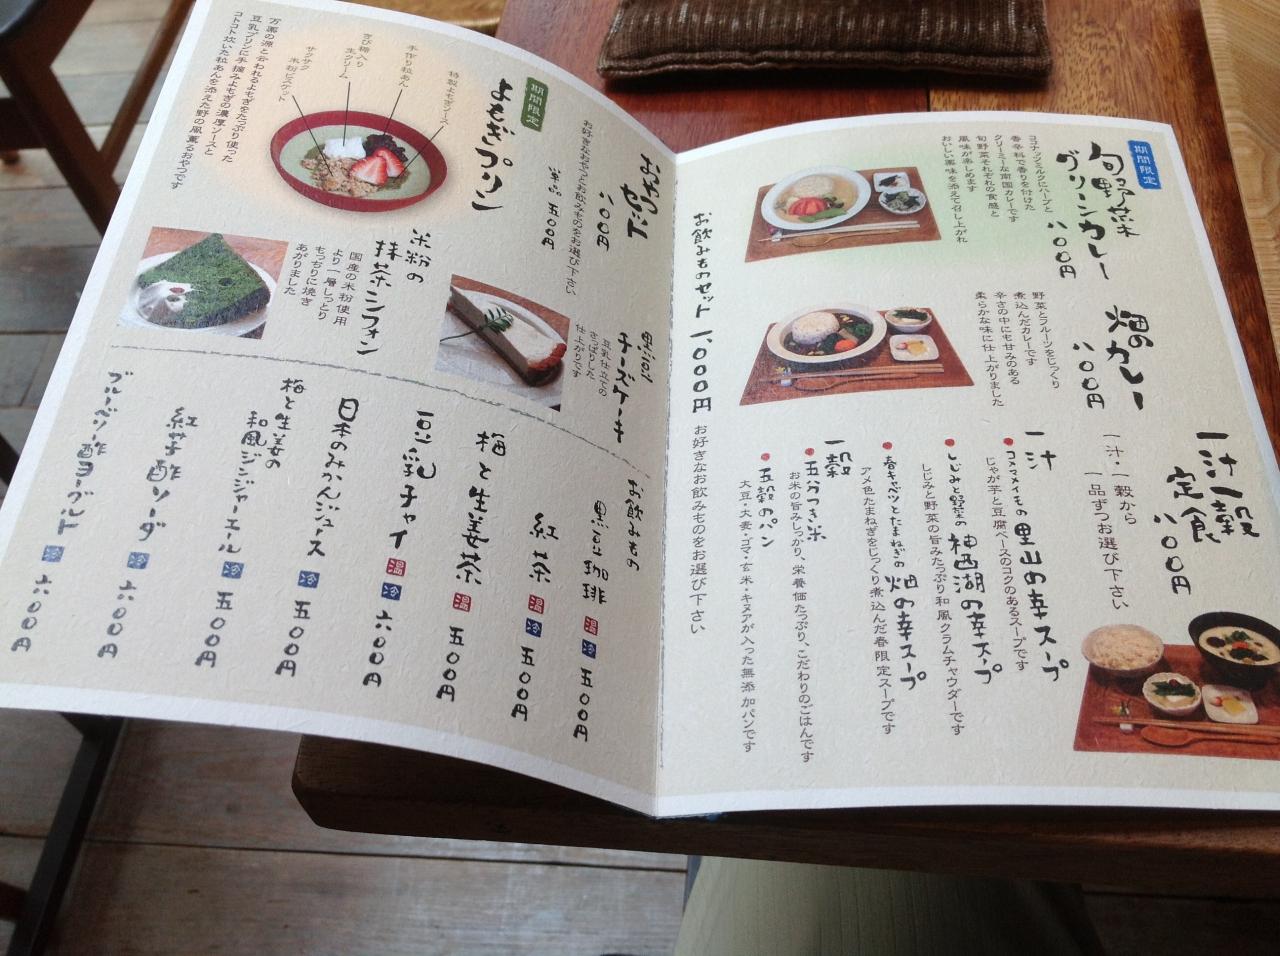 期間限定
旬野菜
グリーンカレー
八〇〇円
ココナッツミルクにハーブと
香辛料で香りを付けた
クリーミーな南国カレーです
旬野菜それぞれの食感と
風味が楽しめます
おいしい薬味を添えて召し上がれ
畑の
カレー
八〇〇円
野菜とフルーツをじっくり
煮込んだカレーです
辛さの中にも甘みのある
柔らかな味に仕上がりました
一汁一穀
定食
八〇〇円
一汁・一穀から
一品ずつお選び下さい
一汁
コメマメイモの里山の幸スープ
じゃが芋と豆腐ベースのコクのあるスープです
しじみと野菜の柏西湖の幸スープ
しじみと野菜の旨みたっぷり和風クラムチャウダーです
春キャベツとたまねぎの畑の幸スープ
アメ色たまねぎをじっくり煮込んだ春限定スープです
一穀
五分つき米
お米の旨みしっかり、栄養価たっぷり、こだわりのごはんです
五穀のパン
大豆・大麦・ゴマ・玄米・キヌアが入った無添加パンです
お飲みものセット 一、〇〇〇円 お好きなお飲みものをお選び下さい
おやつ
セット
八〇〇円
お好きなおやつとお飲みものをお選び下さい
単品 五〇〇円
期間限定
よもぎプリン
特製よもぎソース
手作り粒あん
きび糖入り
生クリーム
サクサク
米粉ビスケット
万薬の源と云われるよもぎをたっぷり使った
豆乳プリンに手摘みよもぎの濃厚ソースと
コトコト炊いた粒あんを添えた野の風薫るおやつです
チーズケーキ
豆乳仕立ての
さっぱりした
仕上がりです
米粉の
抹茶シフォン
国産の米粉使用
より一層しっとり
もっちりに焼き
あがりました
お飲みもの
黒豆珈琲 温 冷 五〇〇円
紅茶 温 冷 五〇〇円
梅と生姜茶 温 五〇〇円
豆乳チャイ 温 冷 六〇〇円
日本のみかんジュース 冷 五〇〇円
梅と生姜の
和風ジンジャーエール 冷 五〇〇円
紅芋酢ソーダ 冷 六〇〇円
ブルーベリー酢ヨーグルト 冷 六〇〇円